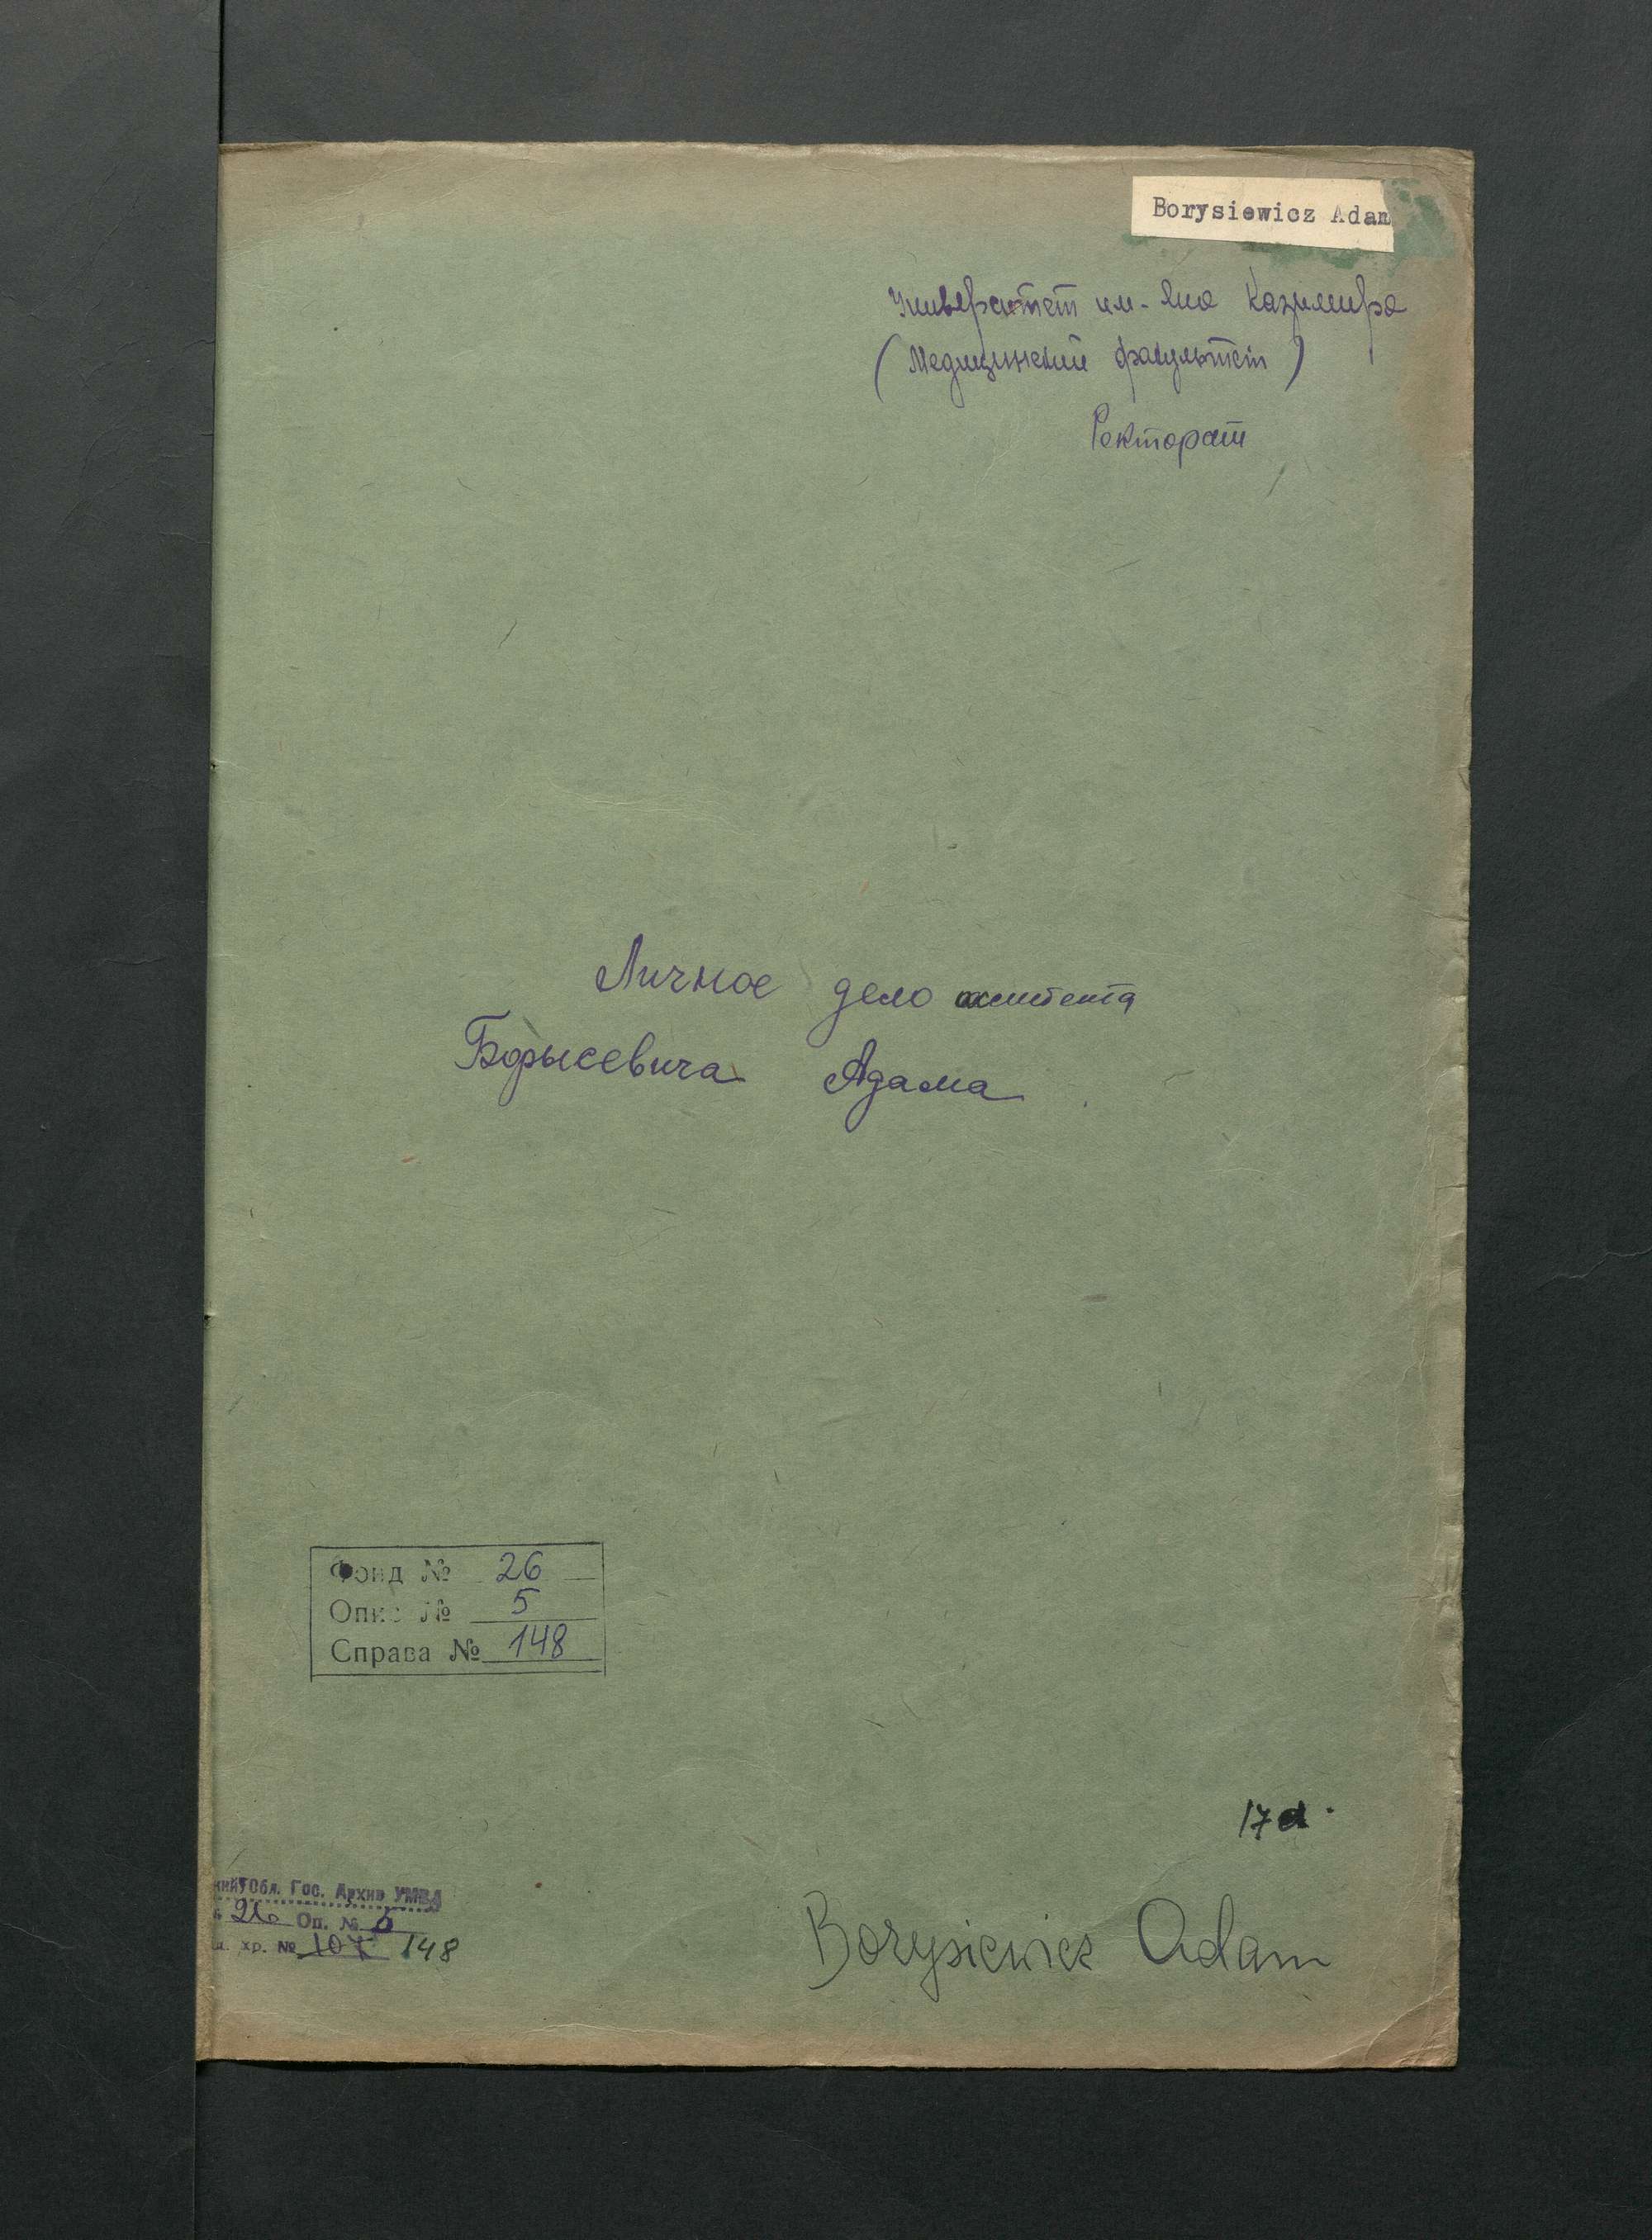 Borysiewicz Adam
Университет им. Яна Казимира
(Медицинский факультет)
Ректорат
Личное дело ассистента
Борысевича Адама
Фонд № 26
Опис № 5
Справа № 148
17 л.
кий Обл. Гос. Архив УМВД
26 Оп. № 5
хр. № 107 148
Borysiewicz Adam